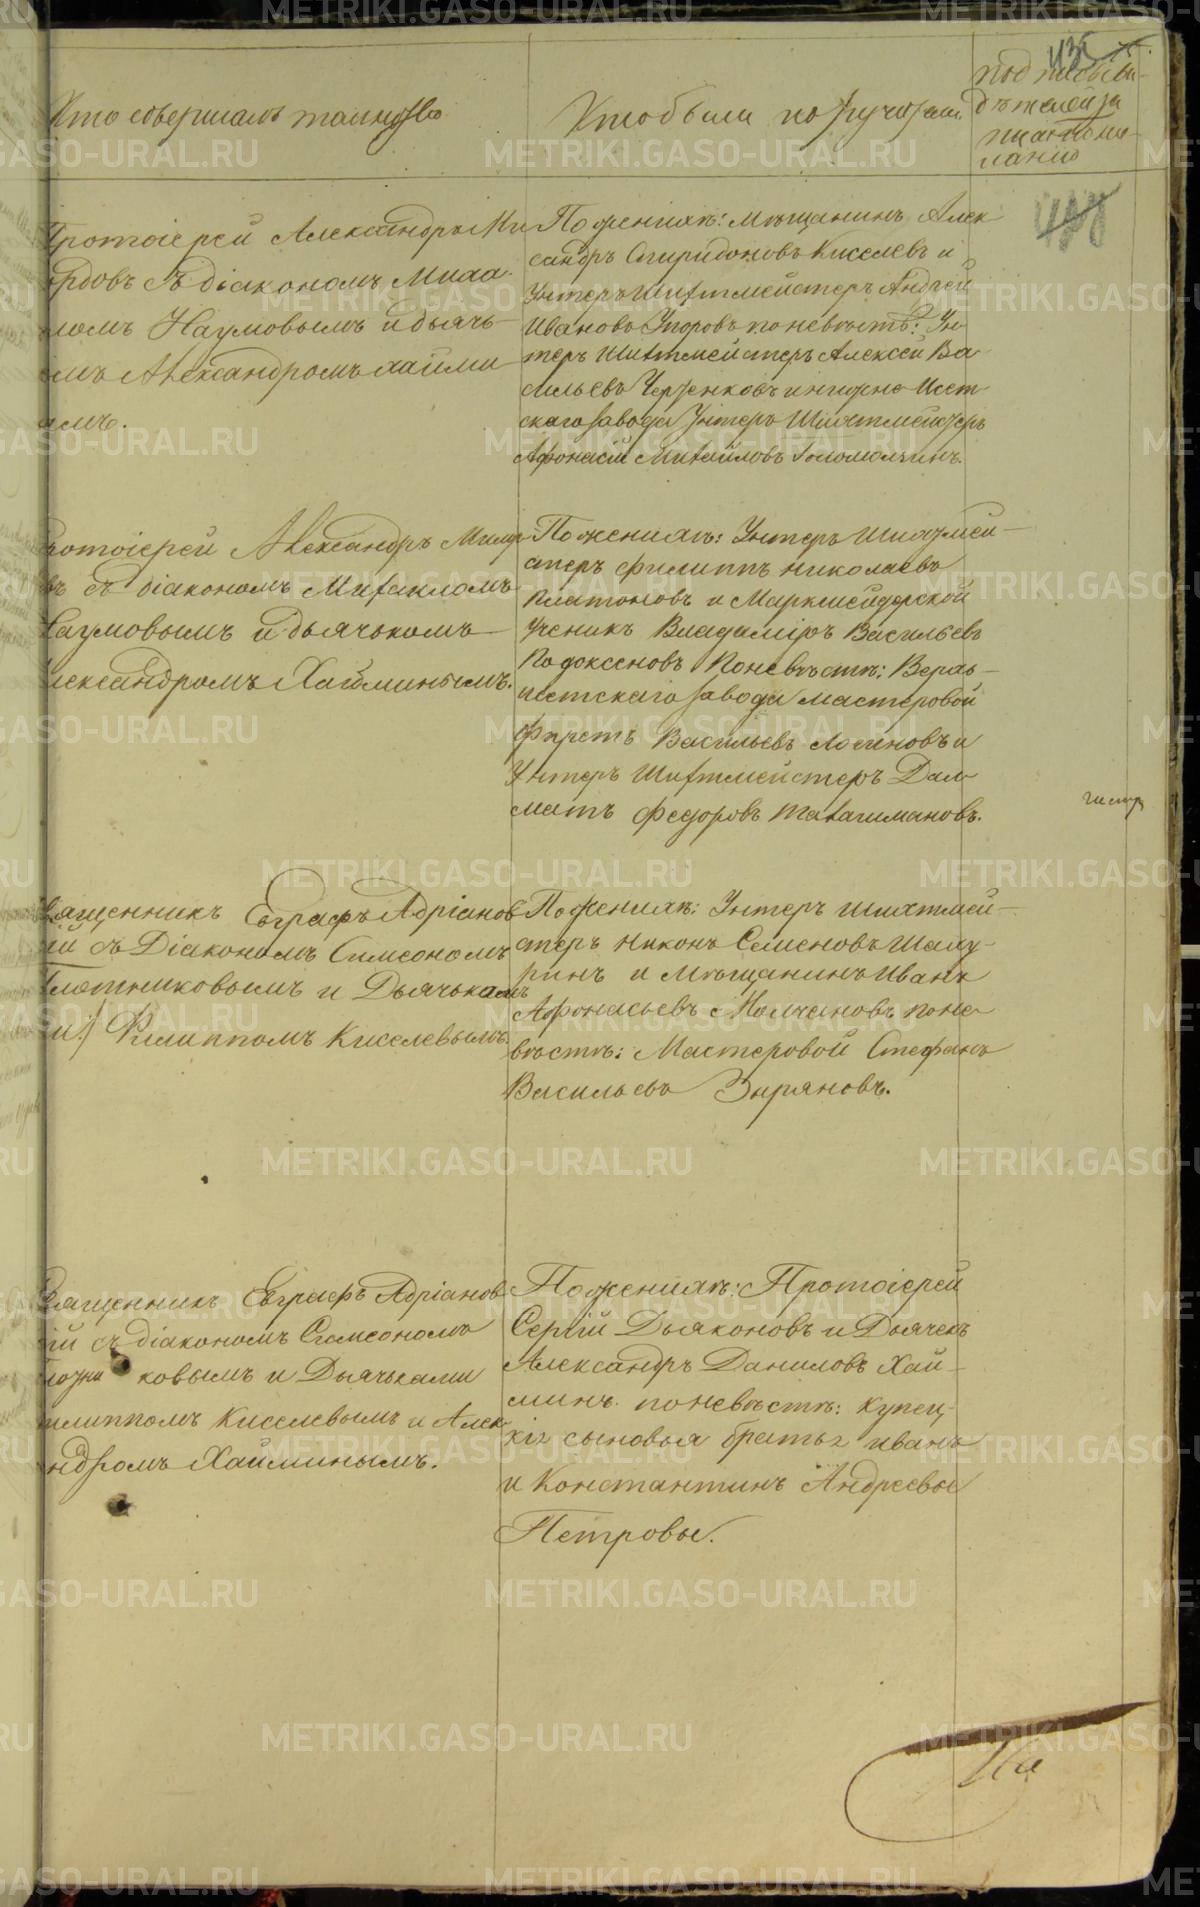 Кто совершалъ таинство
Кто были поручители
подпись сви-
дѣтелей за
писи по же-
ланію
435
Протоіерей Александръ Ми
рдовъ съ діакономъ Миха-
ломъ Наумовымъ и дьячь-
омъ Александромъ Хайми
ымъ.
По женихѣ: Мѣщанинъ Алек
сандръ Спиридоновъ Киселевъ и
Унтеръ Шихтмейстеръ Андрей
Ивановъ Упоровъ по невѣстѣ: Ун
теръ Шихтмейстеръ Алексей Ва
сильевъ и нижне Исет
скаго завода Унтеръ Шихтмейстеръ
Афонасій Михайловъ
ротоіерей Александръ
въ съ діакономъ Михаиломъ
Наумовымъ и дьячькомъ
лександромъ Хайминымъ.
По женихѣ: Унтеръ Шихтмей-
стеръ Филиппъ Николаевъ
Платоновъ и Маркшейдерской
ученикъ Владиміръ Васильевъ
Подоксеновъ По невѣстѣ: Верхъ-
исетскаго завода мастеровой
Фирстъ Васильевъ Логиновъ и
Унтеръ Шихтмейстеръ Дал-
матъ Федоровъ
вященникъ Евграфъ Адріанов
ій съ Діакономъ Симеономъ
Плотниковымъ и Дьячькомъ
Филиппомъ Киселевымъ.
По женихѣ: Унтеръ Шихтмей-
стеръ Никонъ Семеновъ Шаму-
ринъ и Мѣщанинъ Иванъ
Афонасьевъ Молчановъ по не-
вѣстѣ: Мастеровой Стефанъ
Васильевъ Зыряновъ.
вященникъ Евграфъ Адріанов
ій съ діакономъ Симеономъ
лотни ковымъ и Дьячьками
илиппомъ Киселевымъ и Алек
ндромъ Хайминымъ.
По женихѣ: Протоіерей
Сергій Дьяконовъ и Дьячекъ
Александръ Даниловъ Хай-
минъ. по невѣстѣ: купец-
кія сыновья братья Иванъ
и Константинъ Андреевы
Петровы.
METRIKI.GASO-URAL.RU